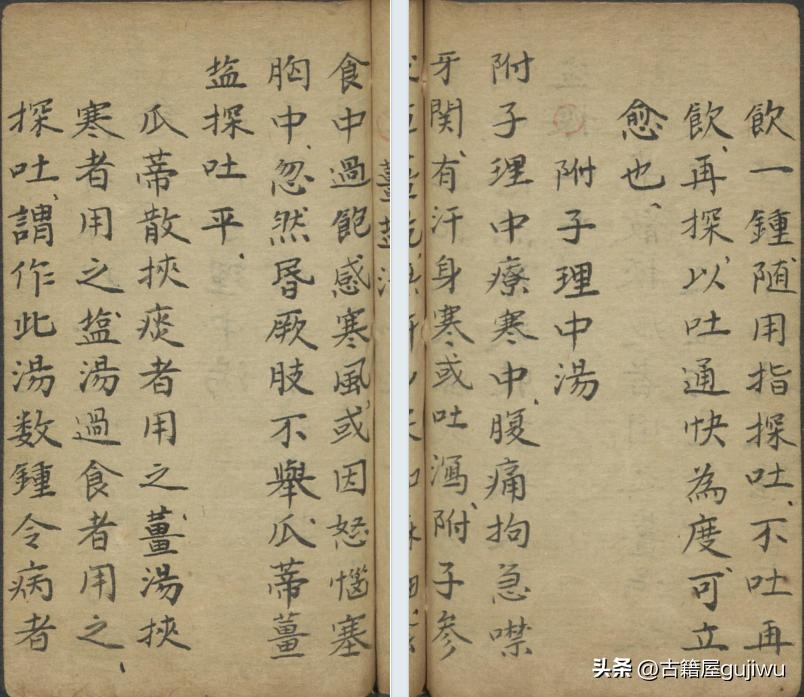 飲一鍾随用指探吐、不吐再
飲、再探、以吐通快為度、可立
愈也、
附子理中湯
附子理中療寒中、腹痛拘急噤
牙関、有汗身寒或吐瀉、附子参
薑盐湯
食中過飽感寒風、或因怒惱塞
胸中、忽然昏厥肢不舉、瓜蒂薑
盐探吐平、
瓜蒂散挾痰者用之、薑湯挾
寒者用之、盐湯過食者用之、
探吐、謂作此湯数鍾令病者
头条 @古籍屋gujiwu